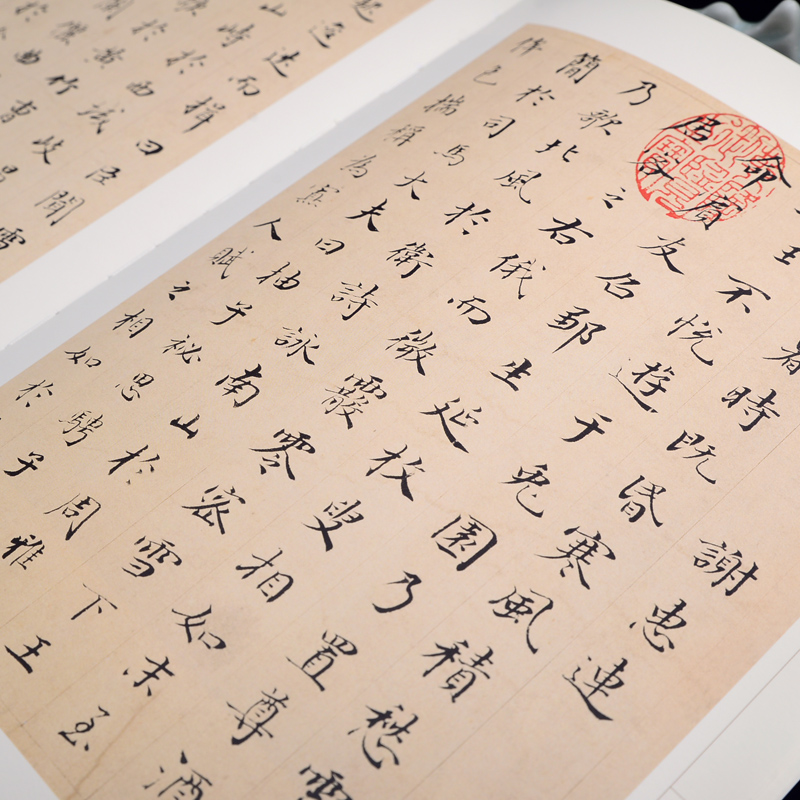 謝惠連
時既昏寒風積愁
王不悅遊于兔園乃置尊酒
命賓友召鄒生延枚叟相如末至
居客之右俄而微霰零密雪下王
乃歌北風於衛詩詠南山於周雅
簡於司馬大夫曰抽子祕思騁子
侔色揣稱為寡人賦之相如於
起逡巡而揖曰臣聞雪
山峙於西域岐昌
於黃竹曹